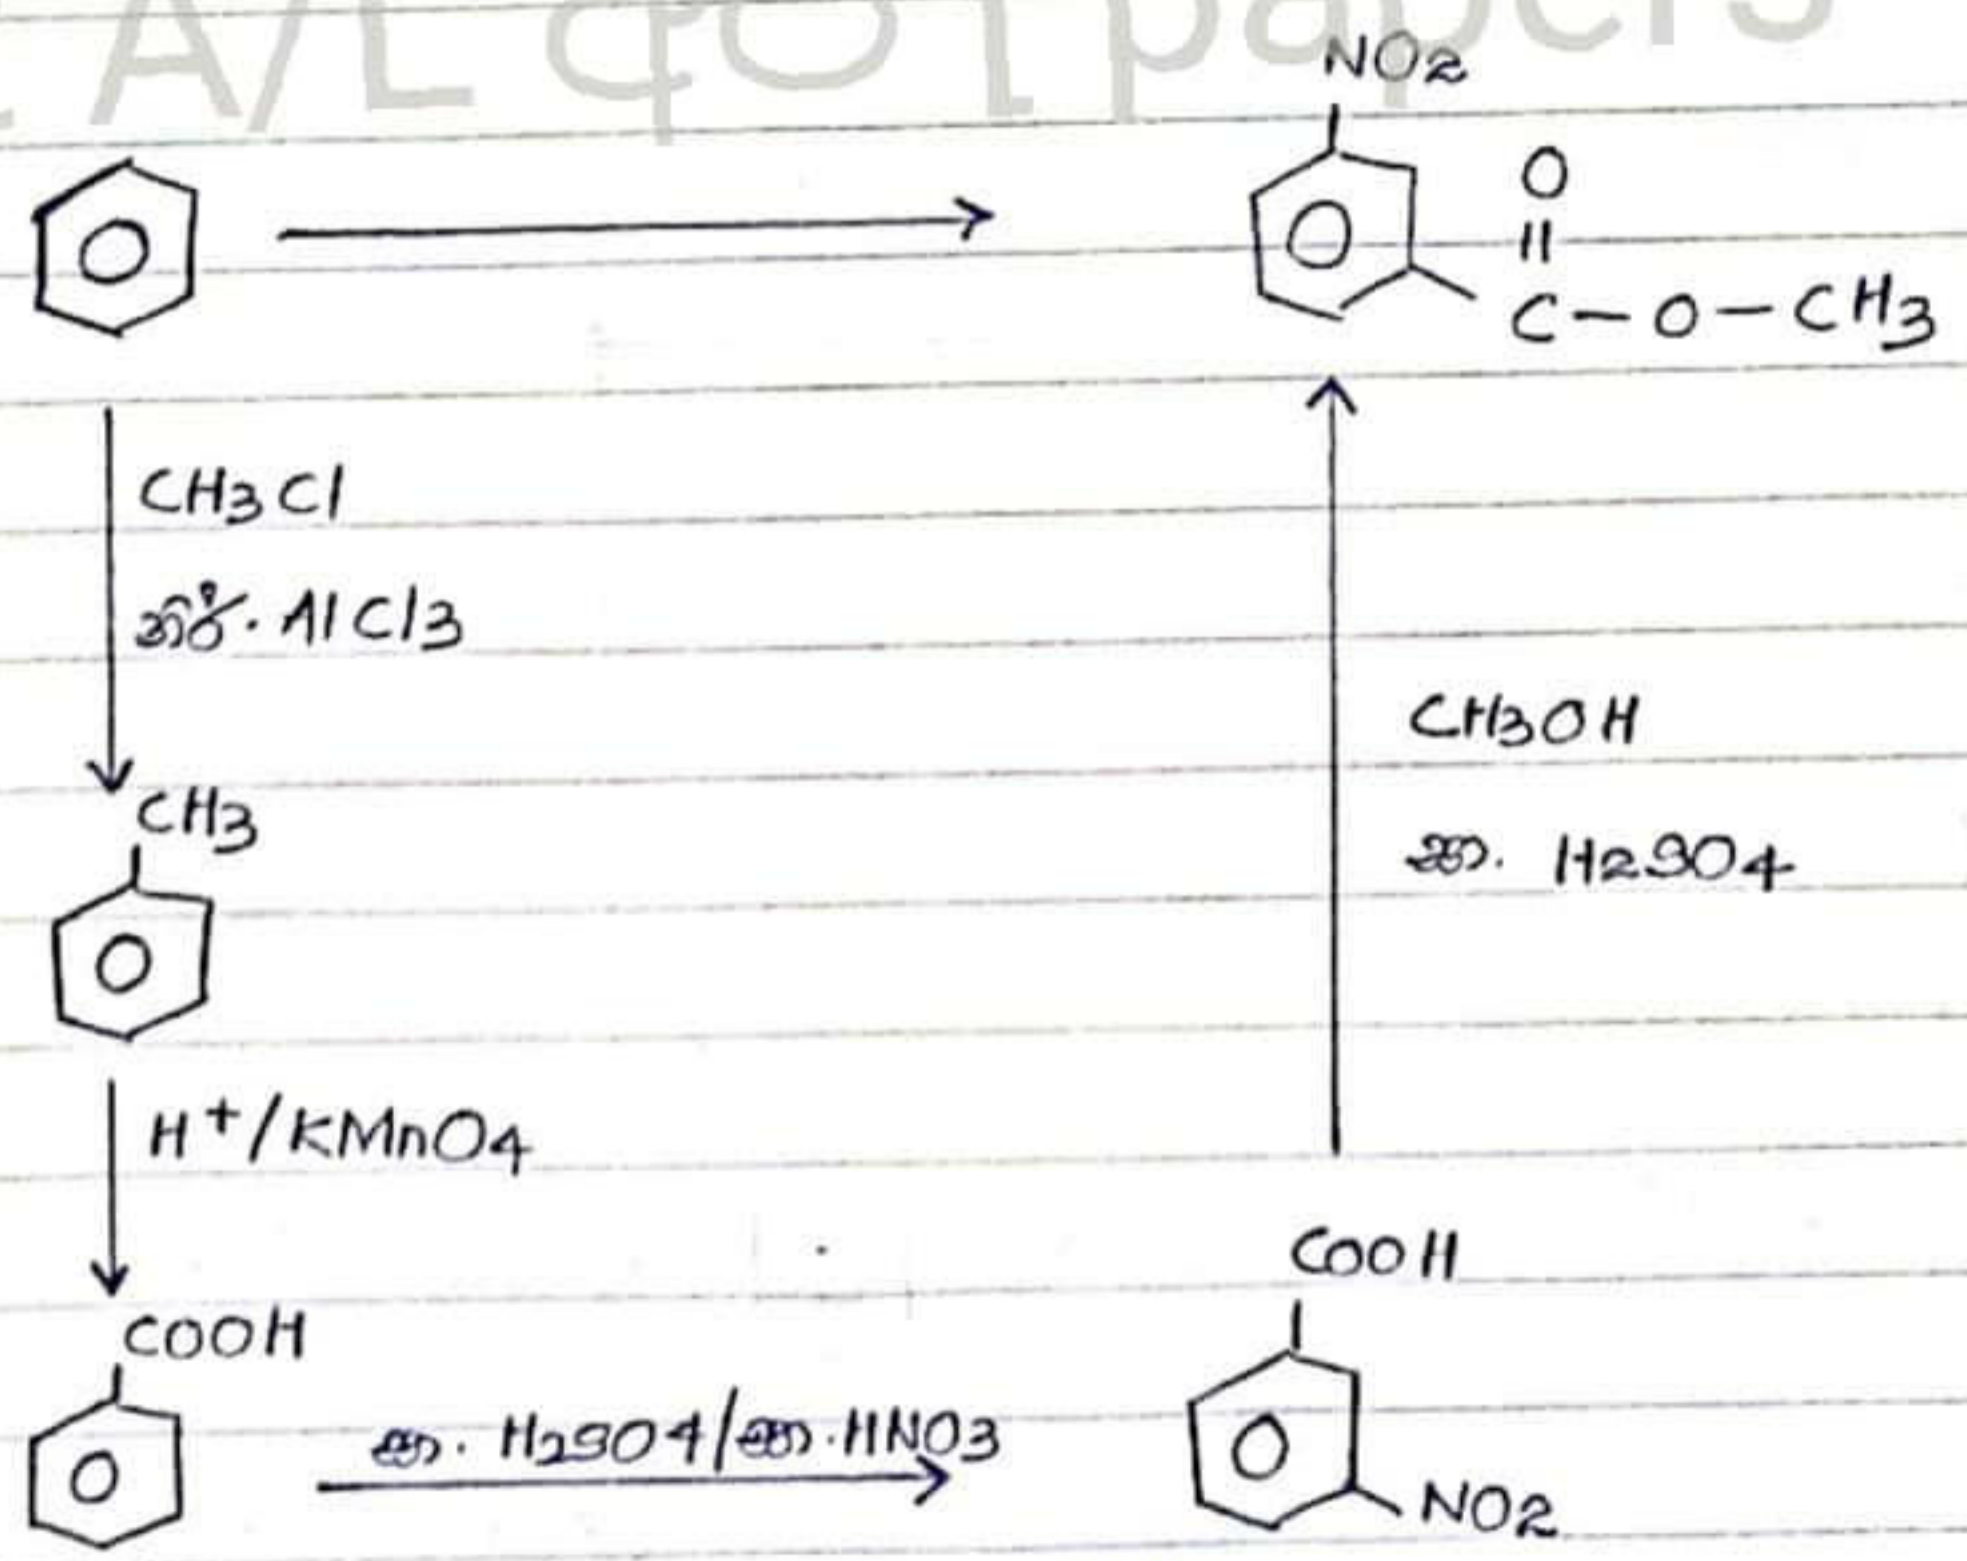 A/L අපි papers
NO2
O
||
C-O-CH3
CH3Cl
නිර්. AlCl3
CH3OH
සා. H2SO4
CH3
H+/KMnO4
COOH
COOH
සා. H2SO4/සා. HNO3
NO2